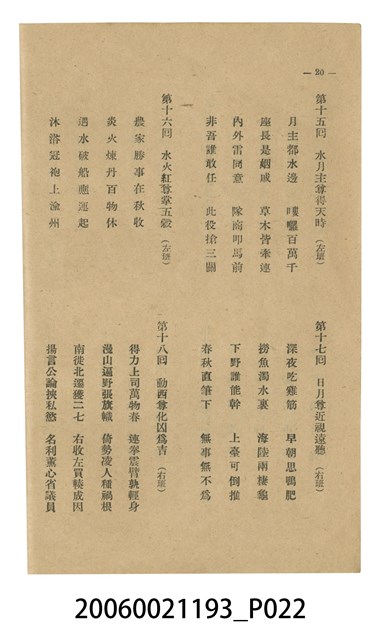 — 20 —
第十五回　水月主尊得天時　(左班)
月主都水邊　嘍囉百萬千
座長是烟戚　草木皆牽連
內外雷同意　隊商叩馬前
非吾誰敢任　此役搶三關
第十六回　水火紅尊掌五穀　(左班)
農家勝事在秋收
炎火煉丹百物休
遇水破船應運起
沐浴冠袍上渝州
第十七回　日月尊近視遠聽　(右班)
深夜吃雞筋　早朝思鴨肥
撈魚濁水裏　海陸兩棲龜
下野誰能幹　上臺可倒推
春秋直筆下　無事無不為
第十八回　動酉尊化凶為吉　(右班)
得力上司萬物春　連拳震臂孰輕身
漫山遍野張旗幟　倚勢凌人種禍根
南徙北遷獲二七　右收左買轃成因
揚言公論挾私慾　名利薰心省議員
20060021193_P022